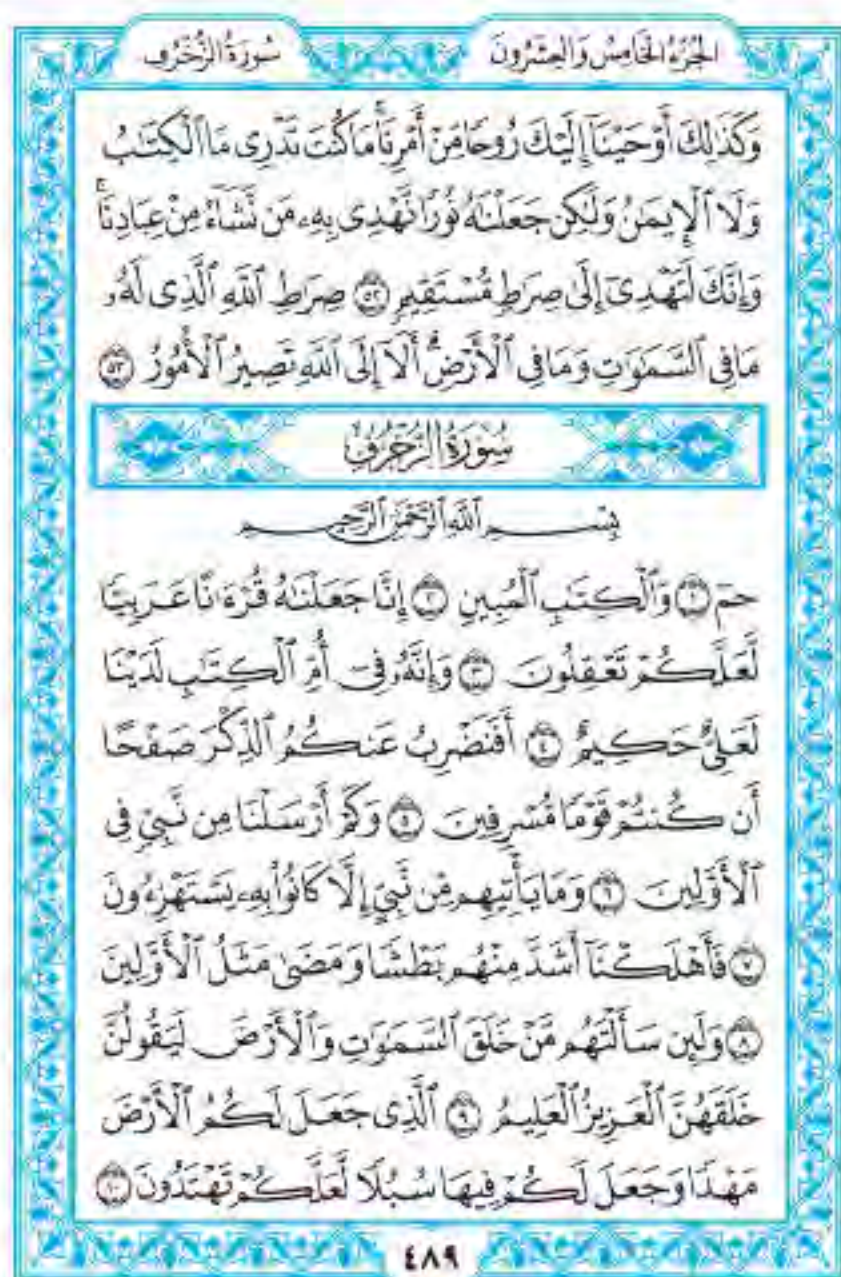 الجُزْءُ الخَامِسُ وَالعِشْرُونَ سُورَةُ الزُّخْرُفِ
وَكَذَٰلِكَ أَوْحَيْنَآ إِلَيْكَ رُوحًا مِّنْ أَمْرِنَاۚ مَا كُنتَ تَدْرِى مَا ٱلْكِتَٰبُ
وَلَا ٱلْإِيمَٰنُ وَلَٰكِن جَعَلْنَٰهُ نُورًا نَّهْدِى بِهِۦ مَن نَّشَآءُ مِنْ عِبَادِنَاۚ
وَإِنَّكَ لَتَهْدِىٓ إِلَىٰ صِرَٰطٍ مُّسْتَقِيمٍ ٥٢ صِرَٰطِ ٱللَّهِ ٱلَّذِى لَهُۥ
مَا فِى ٱلسَّمَٰوَٰتِ وَمَا فِى ٱلْأَرْضِۗ أَلَآ إِلَى ٱللَّهِ تَصِيرُ ٱلْأُمُورُ ٥٣
سُورَةُ الزُّخْرُفِ
بِسْمِ ٱللَّهِ ٱلرَّحْمَٰنِ ٱلرَّحِيمِ
حمٓ ١ وَٱلْكِتَٰبِ ٱلْمُبِينِ ٢ إِنَّا جَعَلْنَٰهُ قُرْءَٰنًا عَرَبِيًّا
لَّعَلَّكُمْ تَعْقِلُونَ ٣ وَإِنَّهُۥ فِىٓ أُمِّ ٱلْكِتَٰبِ لَدَيْنَا
لَعَلِىٌّ حَكِيمٌ ٤ أَفَنَضْرِبُ عَنكُمُ ٱلذِّكْرَ صَفْحًا
أَن كُنتُمْ قَوْمًا مُّسْرِفِينَ ٥ وَكَمْ أَرْسَلْنَا مِن نَّبِىٍّ فِى
ٱلْأَوَّلِينَ ٦ وَمَا يَأْتِيهِم مِّن نَّبِىٍّ إِلَّا كَانُوا۟ بِهِۦ يَسْتَهْزِءُونَ
٧ فَأَهْلَكْنَآ أَشَدَّ مِنْهُم بَطْشًا وَمَضَىٰ مَثَلُ ٱلْأَوَّلِينَ
٨ وَلَئِن سَأَلْتَهُم مَّنْ خَلَقَ ٱلسَّمَٰوَٰتِ وَٱلْأَرْضَ لَيَقُولُنَّ
خَلَقَهُنَّ ٱلْعَزِيزُ ٱلْعَلِيمُ ٩ ٱلَّذِى جَعَلَ لَكُمُ ٱلْأَرْضَ
مَهْدًا وَجَعَلَ لَكُمْ فِيهَا سُبُلًا لَّعَلَّكُمْ تَهْتَدُونَ ١٠
٤٨٩